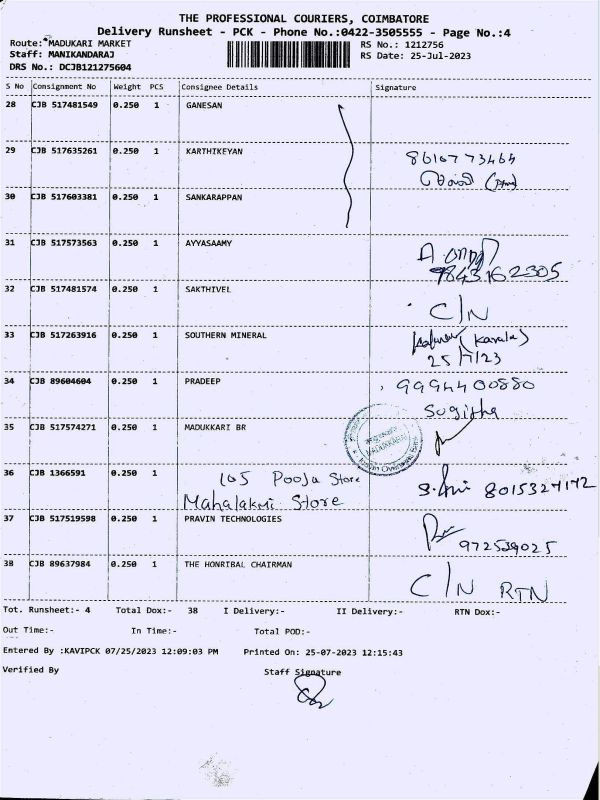 THE PROFESSIONAL COURIERS, COIMBATORE
Delivery Runsheet - PCK - Phone No.:0422-3505555 - Page No.:4
Route: MADUKARI MARKET RS No.: 1212756
Staff: MANIKANDARAJ RS Date: 25-Jul-2023
DRS No.: DCJB121275604
S No Consignment No Weight PCS Consignee Details Signature
28 CJB 517481549 0.250 1 GANESAN
29 CJB 517635261 0.250 1 KARTHIKEYAN
8616773464
30 CJB 517603381 0.250 1 SANKARAPPAN
31 CJB 517573563 0.250 1 AYYASAAMY
9843162305
32 CJB 517481574 0.250 1 SAKTHIVEL C/N
33 CJB 517263916 0.250 1 SOUTHERN MINERAL
(Karala)
25/7/23
34 CJB 89604604 0.250 1 PRADEEP 9994400880
Sugitha
35 CJB 517574271 0.250 1 MADUKKARI BR
MADUKKARAI
36 CJB 1366591 0.250 1 105 Pooja Store
Mahalakmi Store 8015327172
37 CJB 517519598 0.250 1 PRAVIN TECHNOLOGIES
972539025
38 CJB 89637984 0.250 1 THE HONRIBAL CHAIRMAN
C/N RTN
Tot. Runsheet:- 4 Total Dox:- 38 I Delivery:- II Delivery:- RTN Dox:-
Out Time:- In Time:- Total POD:-
Entered By :KAVIPCK 07/25/2023 12:09:03 PM Printed On: 25-07-2023 12:15:43
Verified By Staff Signature